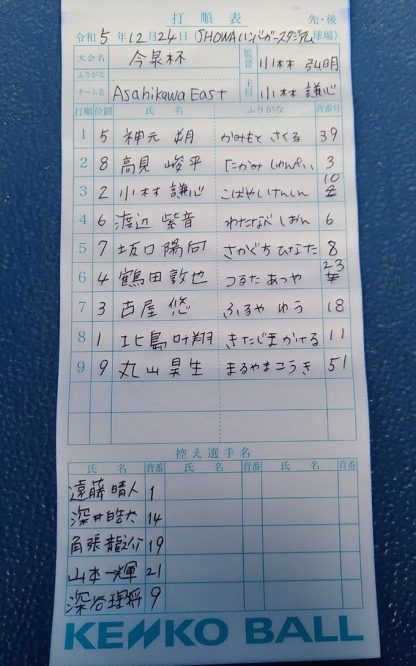 打順表
先・後
令和 5 年 12 月 24 日 (SHOWAインバガースタジアム 球場)
大会名 今泉杯 監督 小林 弘明
ふりがな
チーム名 Asahikawa East 主将 小林 謙心
打順 位置 氏名 ふりがな 背番号
1 5 神元 朔 かみもと さくる 39
2 8 高見 峻平 たかみ しゅんぺい 3
3 2 小林 謙心 こばやし けんしん 10
4 6 渡辺 紫音 わたなべ しおん 6
5 7 坂口 陽向 さかぐち ひなた 8
6 4 鶴田 敦也 つるた あつや 23
7 3 古屋 悠 ふるや ゆう 18
8 1 北島 叶翔 きたじま かける 11
9 9 丸山 昊生 まるやま こうき 51
控え選手名
氏名 背番 氏名 背番 氏名 背番
遠藤 晴人 1
深井 皓大 14
角張 龍介 19
山本 一輝 21
深谷 理将 9
KENKO BALL